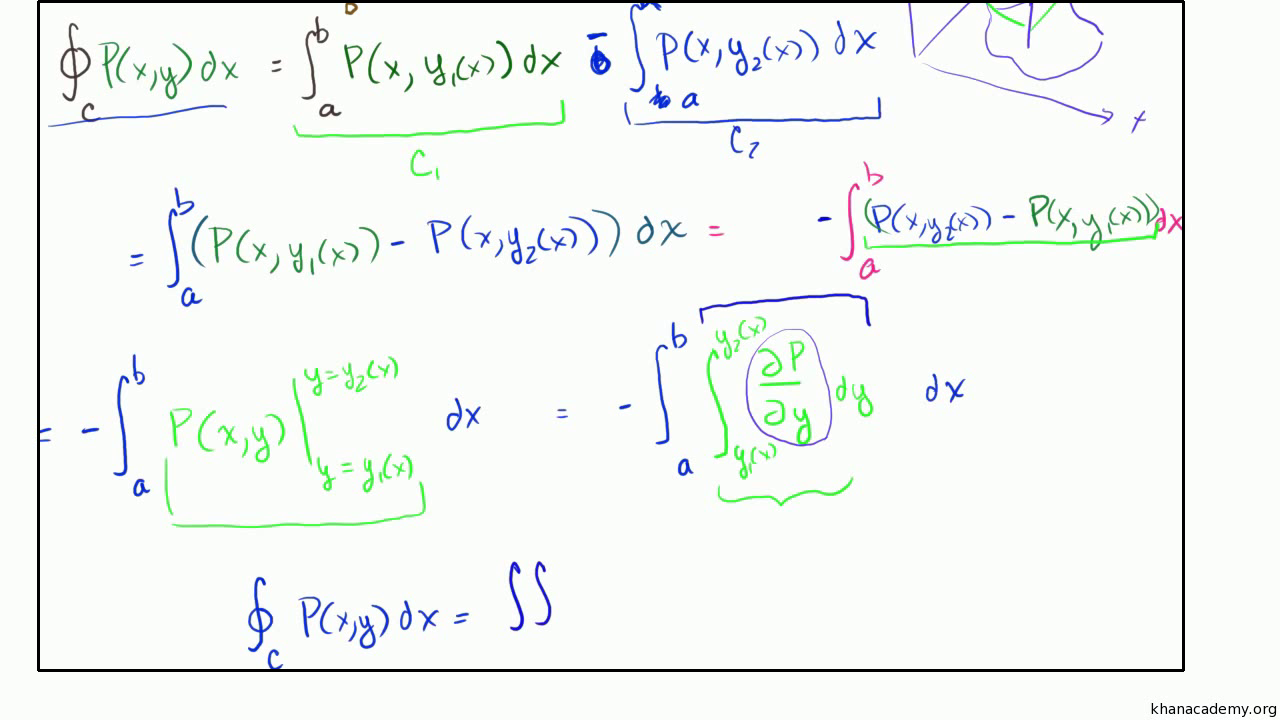 ∮_C P(x,y) dx = ∫_a^b P(x, y₁(x)) dx - ∫_a P(x, y₂(x)) dx
C₁ C₂
x
= ∫_a^b (P(x, y₁(x)) - P(x, y₂(x))) dx = - ∫_a^b (P(x, y₂(x)) - P(x, y₁(x))) dx
= - ∫_a^b P(x,y) |_{y = y₁(x)}^{y = y₂(x)} dx = - ∫_a^b ∫_{y₁(x)}^{y₂(x)} ∂P/∂y dy dx
∮_C P(x,y) dx = ∫∫
khanacademy.org